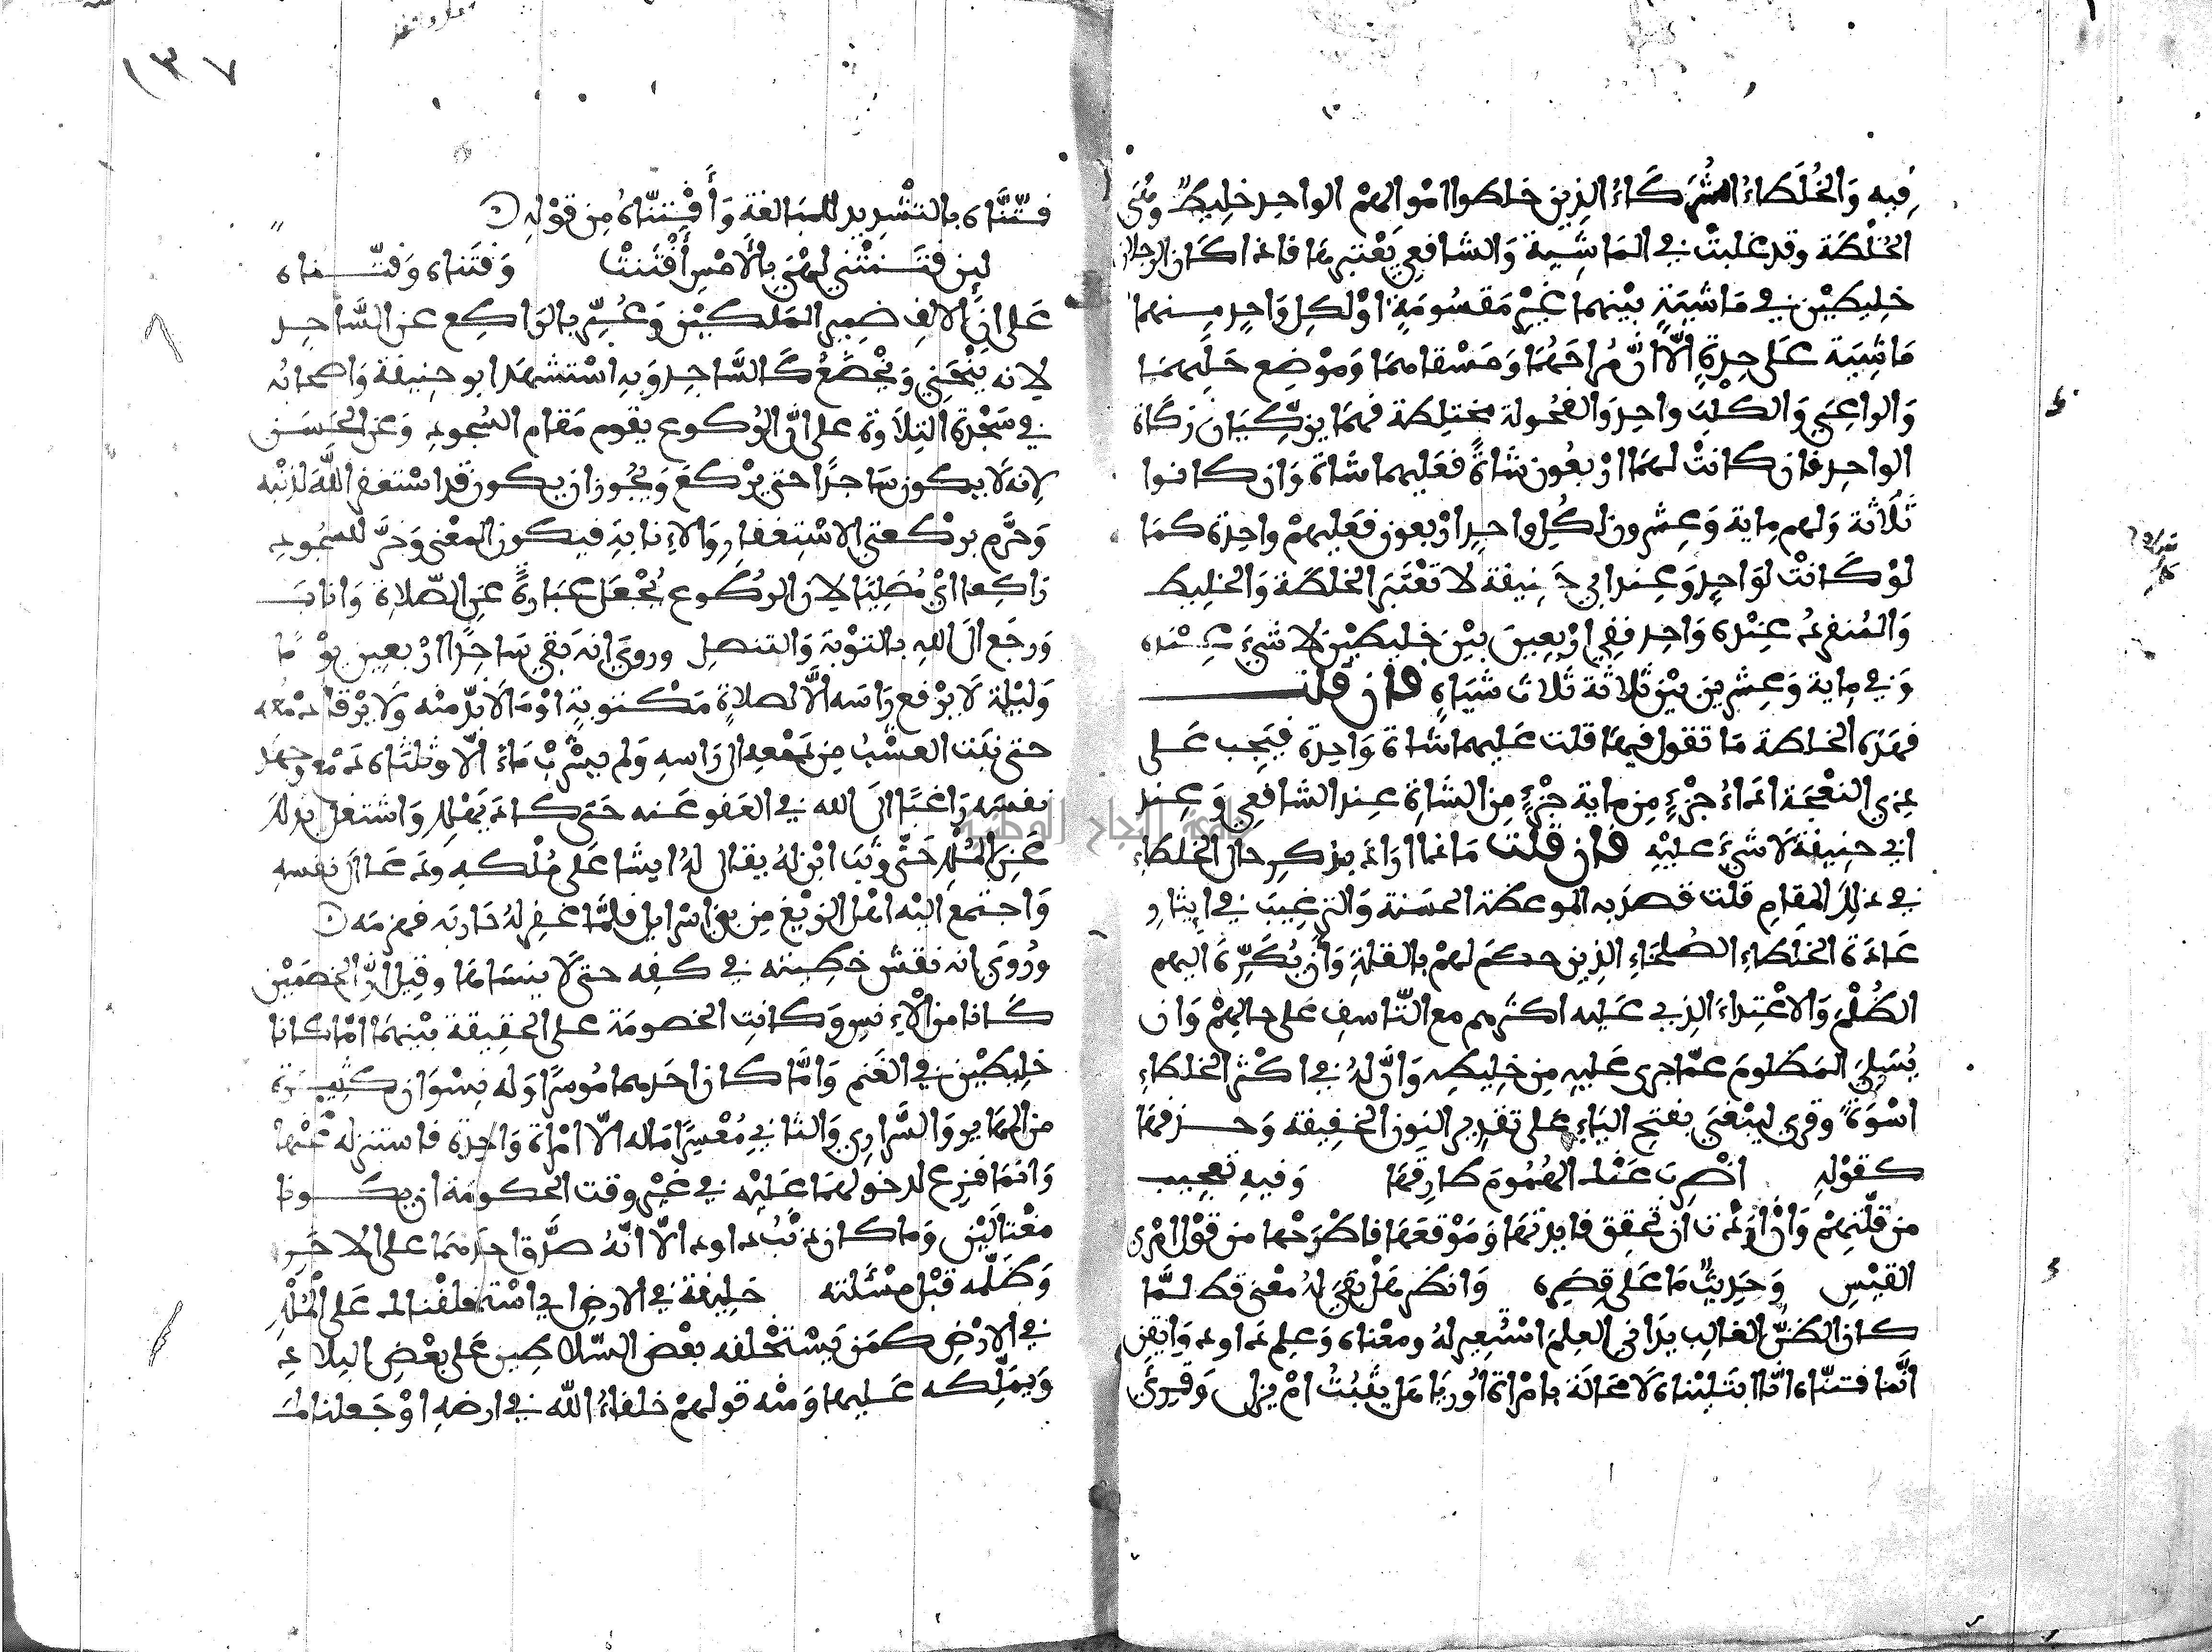 فيه وَالخُلَطَاءُ الشُّرَكَاءُ الذِين خلطوا امْوالهمْ الواحد خلِيطٌ وَهْيَ
الخُلْطَة وقد غلبتْ في المَاشِيَة وَالشافعي يَعْتبرهَا فاذا كَان الرجلان
خليطيْن في مَاشيَةٍ بيْنهما غيْر مَقسُومَةٍ اوْ لكل وَاحِدٍ منهما
مَاشِيَة على حِدةٍ الّا انّ مُراحَهُمَا وَمَسْقاهمَا وَمَوْضِع حَلْبِهمَا
وَالراعي وَالكلْب واحِد وَالفحُولة مختلِطة فهمَا يزكِّيَان زكَاة
الواحِد فان كانتْ لهمَا ارْبعُون شاةً فعَليهما شاة وَان كانوا
ثَلَاثة وَلهم مِاية وَعِشرون لكُل واحِدٍ ارْبعون فعَليهمْ واحِدة كمَا
لوْ كَانتْ لوَاحِدٍ وَعِند ابي حَنِيفة لا تعْتَبَر الخلطَة وَالخلِيط
وَالمُنفرد عِنْده وَاحِد ففي ارْبعِينَ بيْن خلِيطيْن لا شيْءَ عِنْده
وَفي مِاية وَعِشرين بيْن ثلاثَة ثَلاث شيَاهٍ فان قلت
فهَذه الخلطة مَا تقول فيهَا قلت عَليهما شاة وَاحِدة فيَجِب عَلى
ذي النعْجَة ادَاءُ جزْءٍ مِن ماية جزْءٍ مِن الشاةِ عِند الشافعي وَعِند
ابي حنِيفة لَا شيْءَ عليْهِ فان قلت مَاذا ارَادَ بذكرِ حال الخلطاء
في ذلِكَ المقام قلت قصدَ به الموعظة الحسَنة وَالترغِيبَ في ايثار
عَادَة الخلطاءِ الصُلحَاءِ الذِين حكمَ لهمْ بالقلةِ وَأَن يُكَرِّهَ اليهم
الظُلْمَ وَالاعْتِداءَ الذِي عَليه اكثرهم مع التّاسفِ عَلى حالهِمْ وَان
يُسَلِيَ المَظلومَ عمّا جرى عَليهِ مِن خلِيطِه وَانَّ لهُ في اكثر الخلطاءِ
اسْوَةً وقري ليبْغيَ بفتح اليَاءِ على تقدِير النون الخفِيفة وَحذفهَا
كقوْلِه اضْرِبَ عَنْك الهُمُومَ طارِقهَا وَفيهِ تعجِيب
من قلّتِهِمْ وَانْ ارَدْت ان تحقِق فايدتهَا وَمَوْقعَهَا فاطْرَحْها من قوْل امْرئ
القيْسِ وَحَدِيثٌ مَا عَلى قِصَرِه وَانظر هَلْ بقيَ لهُ معْنى قط لمَّا
كان الظنُّ الغالِب يدَاني العِلم اسْتُعِير لهُ ومعْناه وَعلم دَاود وَايقن
انَّما فتنّاه انّا ابتَليْناه لَا محَالةَ بامْراة اُورِيَا هَل يثبُتُ امْ يزل وَقرِئ
١٣٧
فتّنَّاه بالتشْدِيد للمبَالغة وَأَفْتنّاهُ مِن قوْلهِ
لين فتَنتْني لهْيَ بِالأَمْسِ أَفْتَنتْ وَفتَناه وَفتّناه
عَلى انَّ الالِف ضمِير المَلكيْن وَعُبِّر بالرَاكِع عن السَّاجِد
لانه ينْحَنِي وَيخْضَعُ كَالسَّاجِد وَبهِ اسْتشهَد ابو حنِيفة وَاصحابُه
في سَجْدة التِلَاوة على انّ الرُكوع يقوم مَقام السُجود وَعن الحَسَن
لانه لَا يكون سَاجدًا حتى يرْكعَ وَيجُوز ان يكون قد اسْتغفر اللّهَ لذنْبه
وَحَرَّم بركْعتي الاسْتِغفارِ وَالانابَةِ فيكون المعْنى وَخرَّ للسجُود
رَاكِعا ايْ مُصَلِيًا لان الرُكُوع يُجْعَل عبَارةً عَن الصّلاة وَانابَ
وَرجَع الَى اللهِ بالتوْبة وَالتنصل وروي انه بَقي سَاجدًا ارْبعين يوْمًا
وَليْلة لَا يرْفع رَاسه الَّا لصلاةٍ مَكتوبةٍ اوْ مَا لَا بدّ مِنْه وَلا يرْقا دمْعه
حتى نبَت العشْبُ مِن دَمْعه الى رَاسِه وَلم يشْربْ مَاءً الّا وثلثَاه دَمْع وجهَد
نفسَه رَاغبًا الَى الله في العَفو عَنه حَتى كادَ يَهْلِك وَاشتغل بذلك
عَنِ المُلْك حَتّى وثبَ ابْن لهُ يقال لهُ ايشا عَلى مُلْكه ودَعَا الى نفسه
وَاجتمع اليْه اهْل الزيْغ مِن بني اسْرايل فلمَّا غفِر لهُ حَاربَه فهزمَه
ورُوَي انه نقش خطِيئته في كفِه حتى لَا ينسَاهَا وقِيل انّ الخصَمَيْن
كَانا من الاِنسِ وَكانتِ الخصومَة على الحقِيقة بيْنهمَا امّا كانا
خلِيطيْن في الغَنم وَامَّا كان احدهما مُوسرًا وَله نِسْوَان كثِيرَة
من المهَايرِ وَالسَّرارِي وَالثاني مُعْسِرًا مَاله الّا امْراة وَاحِدة فاستنزله عَنْها
وَانمَا فزِع لدخولهمَا عَليْه في غيْر وقت الحكومَة ان يكونا
مغْتالَيْن وَما كان ذنْبُ داود الّا انّهُ صَدَّق احدهمَا على الاخَرِ
وَظَلّمَه قبْل مسْئَلته خلِيفة في الارضِ اي اسْتخلفْناك عَلى المُلْكِ
في الارْضِ كمَن يَسْتخْلفه بعْض السّلاطِين عَلى بعْض البِلاد
وَيمَلّكه عَليهَا وَمنْه قولهمْ خلفاءُ اللّه في ارضهِ اوْ جَعلناكَ